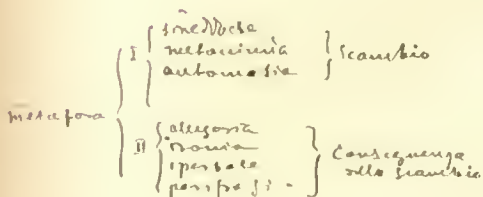 metafora
I
sineddoche
metonimia
automasia
Scambio
II
allegoria
ironia
iperbole
perifrasi.
Conseguenza
dello scambio